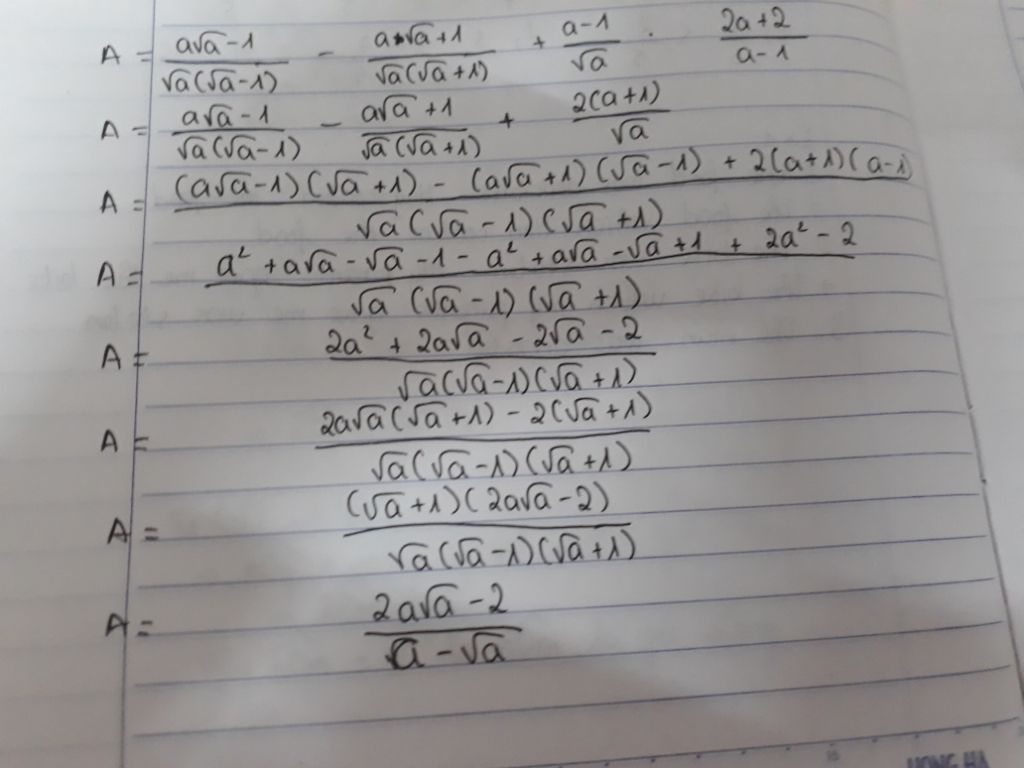 A = (a√a - 1)/(√a(√a - 1)) - (a√a + 1)/(√a(√a + 1)) + (a - 1)/√a . (2a + 2)/(a - 1)
A = (a√a - 1)/(√a(√a - 1)) - (a√a + 1)/(√a(√a + 1)) + 2(a + 1)/√a
A = ((a√a - 1)(√a + 1) - (a√a + 1)(√a - 1) + 2(a + 1)(a - 1))/(√a(√a - 1)(√a + 1))
A = (a² + a√a - √a - 1 - a² + a√a - √a + 1 + 2a² - 2)/(√a(√a - 1)(√a + 1))
A = (2a² + 2a√a - 2√a - 2)/(√a(√a - 1)(√a + 1))
A = (2a√a(√a + 1) - 2(√a + 1))/(√a(√a - 1)(√a + 1))
A = ((√a + 1)(2a√a - 2))/(√a(√a - 1)(√a + 1))
A = (2a√a - 2)/(a - √a)
HONG HA